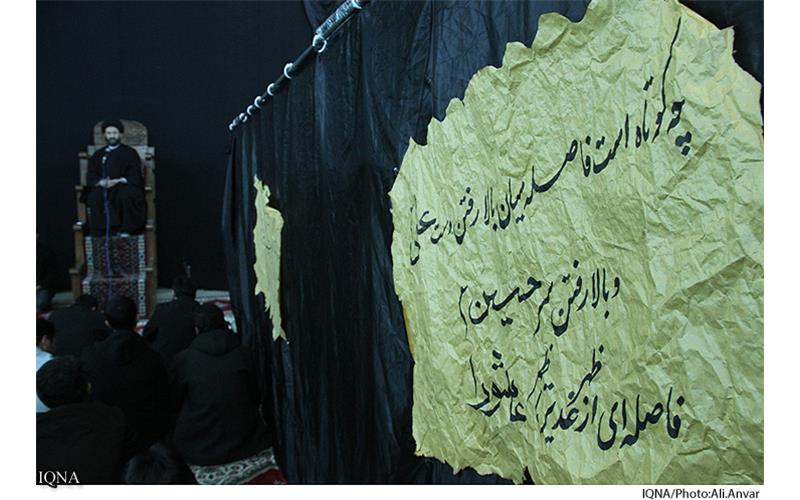 چه کوتاه است فاصله میان بالا رفتن دست علی
و بالا رفتن سر حسین
فاصله ای از غدیر ظهر عاشورا
IQNA
IQNA/Photo:Ali.Anvar